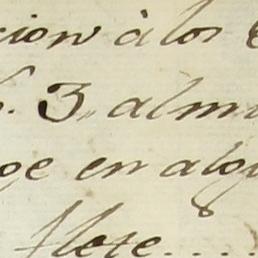 cion à los
3, almu
ge en alg
flete....